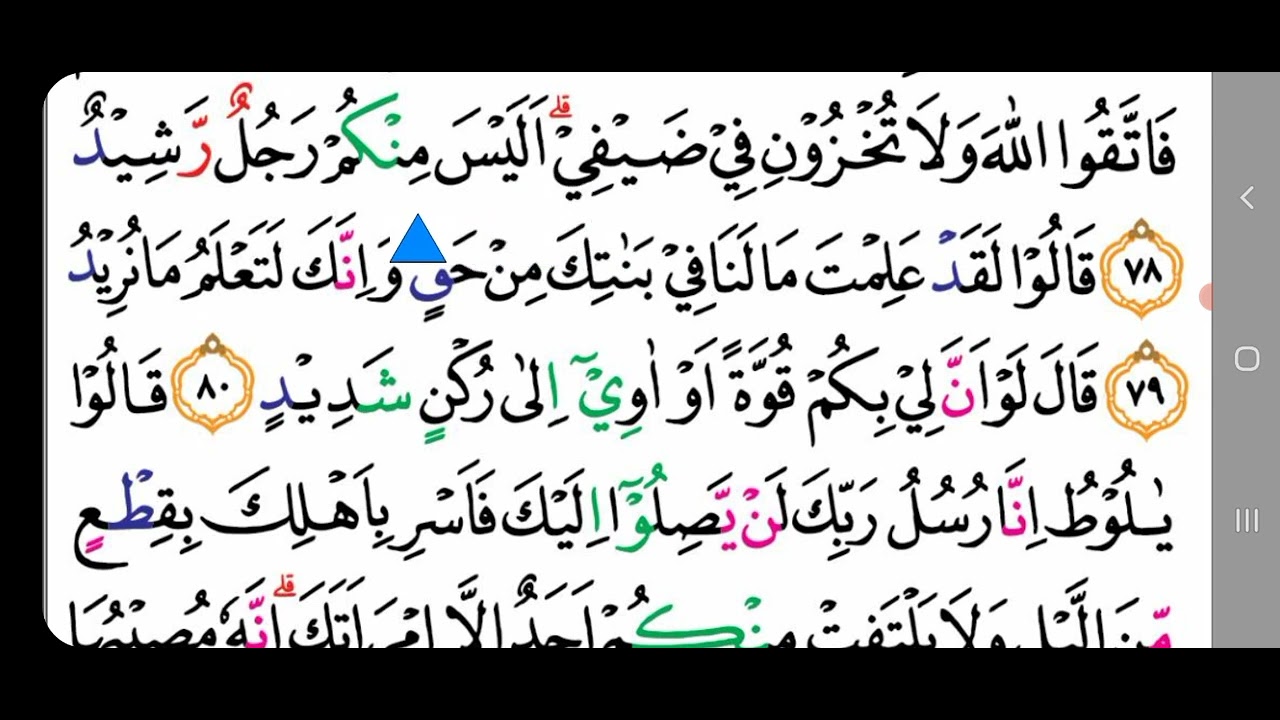 فَاتَّقُوا اللّٰهَ وَلَا تُخْزُوْنِ فِيْ ضَيْفِيْ ۗ اَلَيْسَ مِنْكُمْ رَجُلٌ رَّشِيْدٌ
٧٨ قَالُوْا لَقَدْ عَلِمْتَ مَا لَنَا فِيْ بَنٰتِكَ مِنْ حَقٍّ وَاِنَّكَ لَتَعْلَمُ مَا نُرِيْدُ
٧٩ قَالَ لَوْ اَنَّ لِيْ بِكُمْ قُوَّةً اَوْ اٰوِيْٓ اِلٰى رُكْنٍ شَدِيْدٍ ٨٠ قَالُوْا
يٰلُوْطُ اِنَّا رُسُلُ رَبِّكَ لَنْ يَّصِلُوْٓا اِلَيْكَ فَاَسْرِ بِاَهْلِكَ بِقِطْعٍ
مِّنَ الَّيْلِ وَلَا يَلْتَفِتْ مِنْكُمْ اَحَدٌ اِلَّا امْرَاَتَكَ ۗ اِنَّهٗ مُصِيْبُهَا